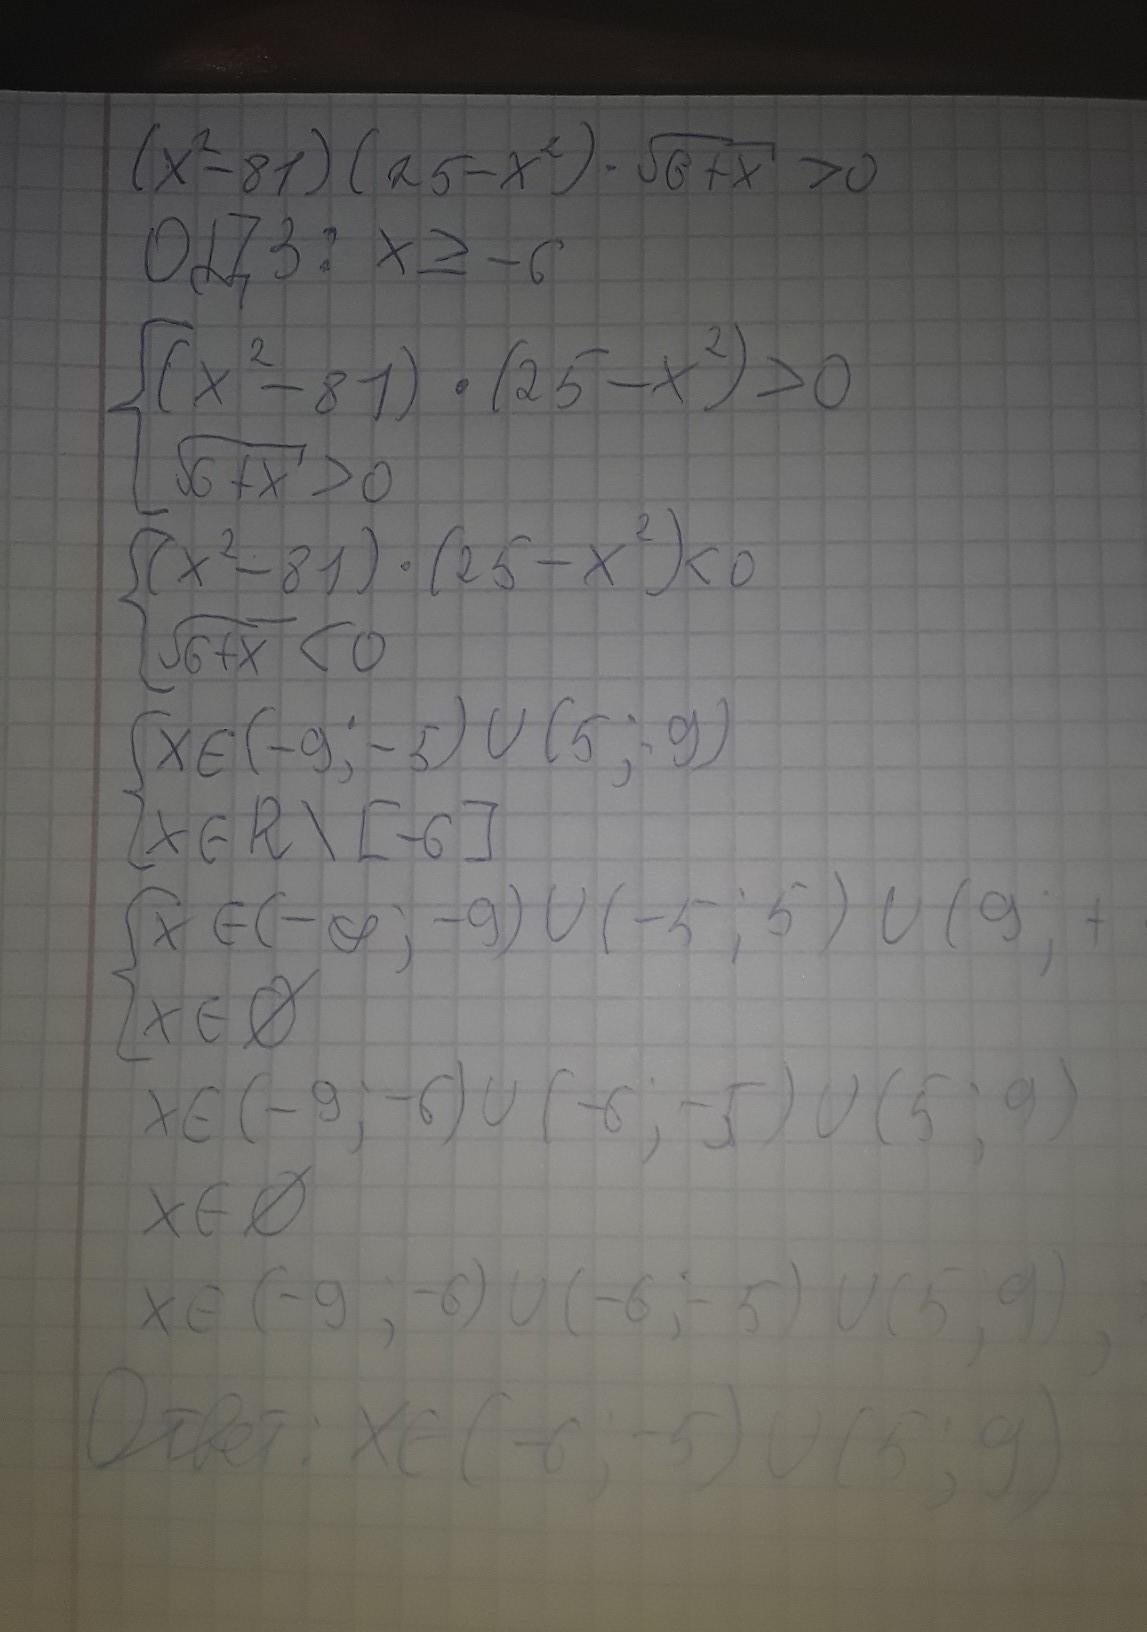 (x²-81)(25-x²)·√6+x >0
ОДЗ: x≥-6
{(x²-81)·(25-x²)>0
√6+x >0
{(x²-81)·(25-x²)<0
√6+x <0
{x∈(-9;-5)∪(5;9)
x∈R\[-6]
{x∈(-∞;-9)∪(-5;5)∪(9;+
x∈∅
x∈(-9;-6)∪(-6;-5)∪(5;9)
x∈∅
x∈(-9;-6)∪(-6;-5)∪(5;9),
Ответ: x∈(-6;-5)∪(5;9)